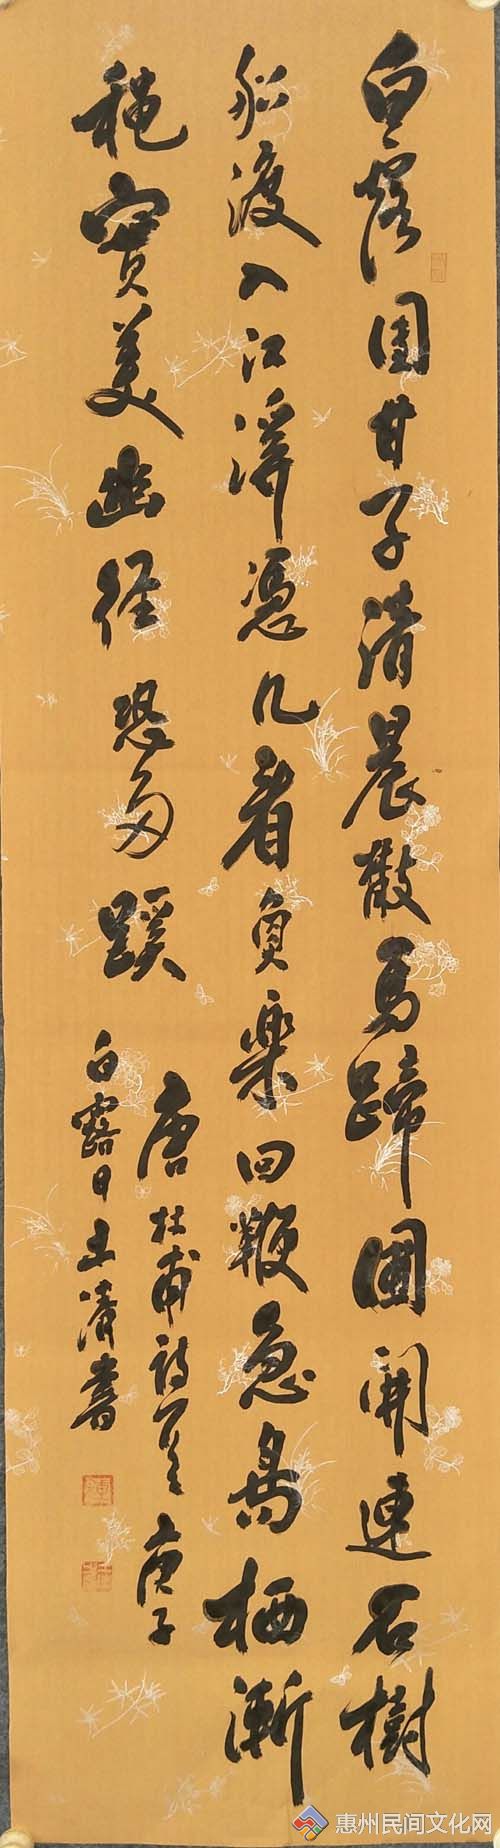 白露團甘子清晨散馬蹄圃開連石樹
船渡入江溪憑几看魚楽回鞭急鳥栖漸
穐實美幽徑恐多蹊
唐杜甫詩一首庚子
白露日清書
惠州民间文化网